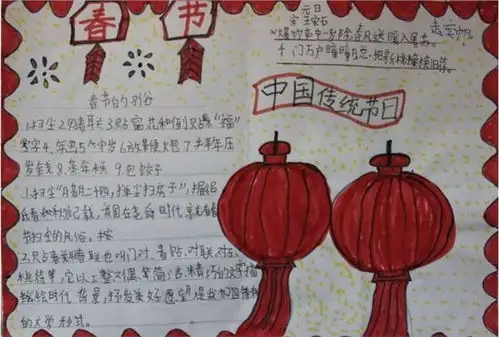 春节
元日
宋 王安石
爆竹声中一岁除春风送暖入屠苏。
千门万户曈曈日总把新桃换旧符。
中国传统节日
春节的习俗
1.扫尘2.贴春联3.贴窗花和倒贴“福”
字4.年画5.守岁6.放鞭炮7.拜年压
岁钱8.蒸年糕9.包饺子
1.扫尘“腊月二十四,掸尘扫房子”,据吕氏
春秋记载,我国在尧舜时代就有春
节扫尘的风俗。
2.贴春联春联也叫门对、春贴、对联、对
桃符等,它以工整对偶、简洁、精巧的文字描
绘时代背景,抒发美好愿望,是我国特有
的文学形式。